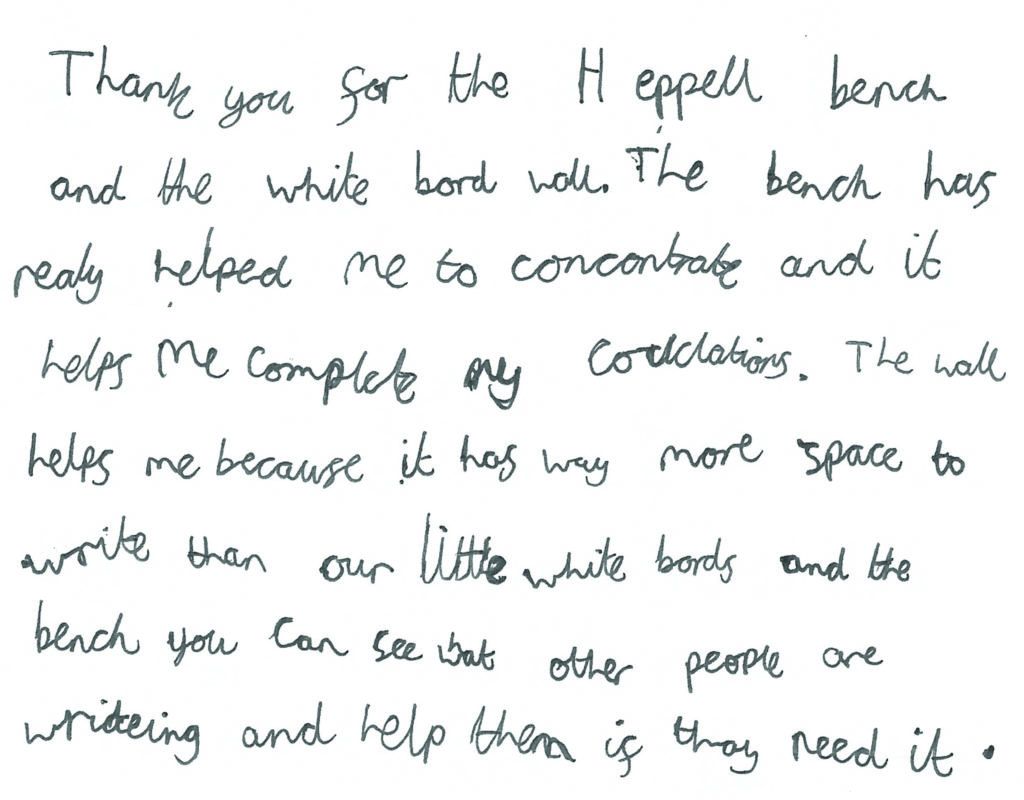 Thank you for the Heppell bench
and the white bord wall. The bench has
realy helped me to concontrate and it
helps me complete my
The wall
helps me because it has way more space to
write than our little white bords and the
bench you can see wat other people are
writeing and help them if thay need it.